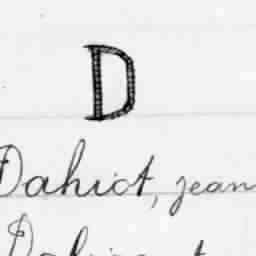 D
Dahiot, jean